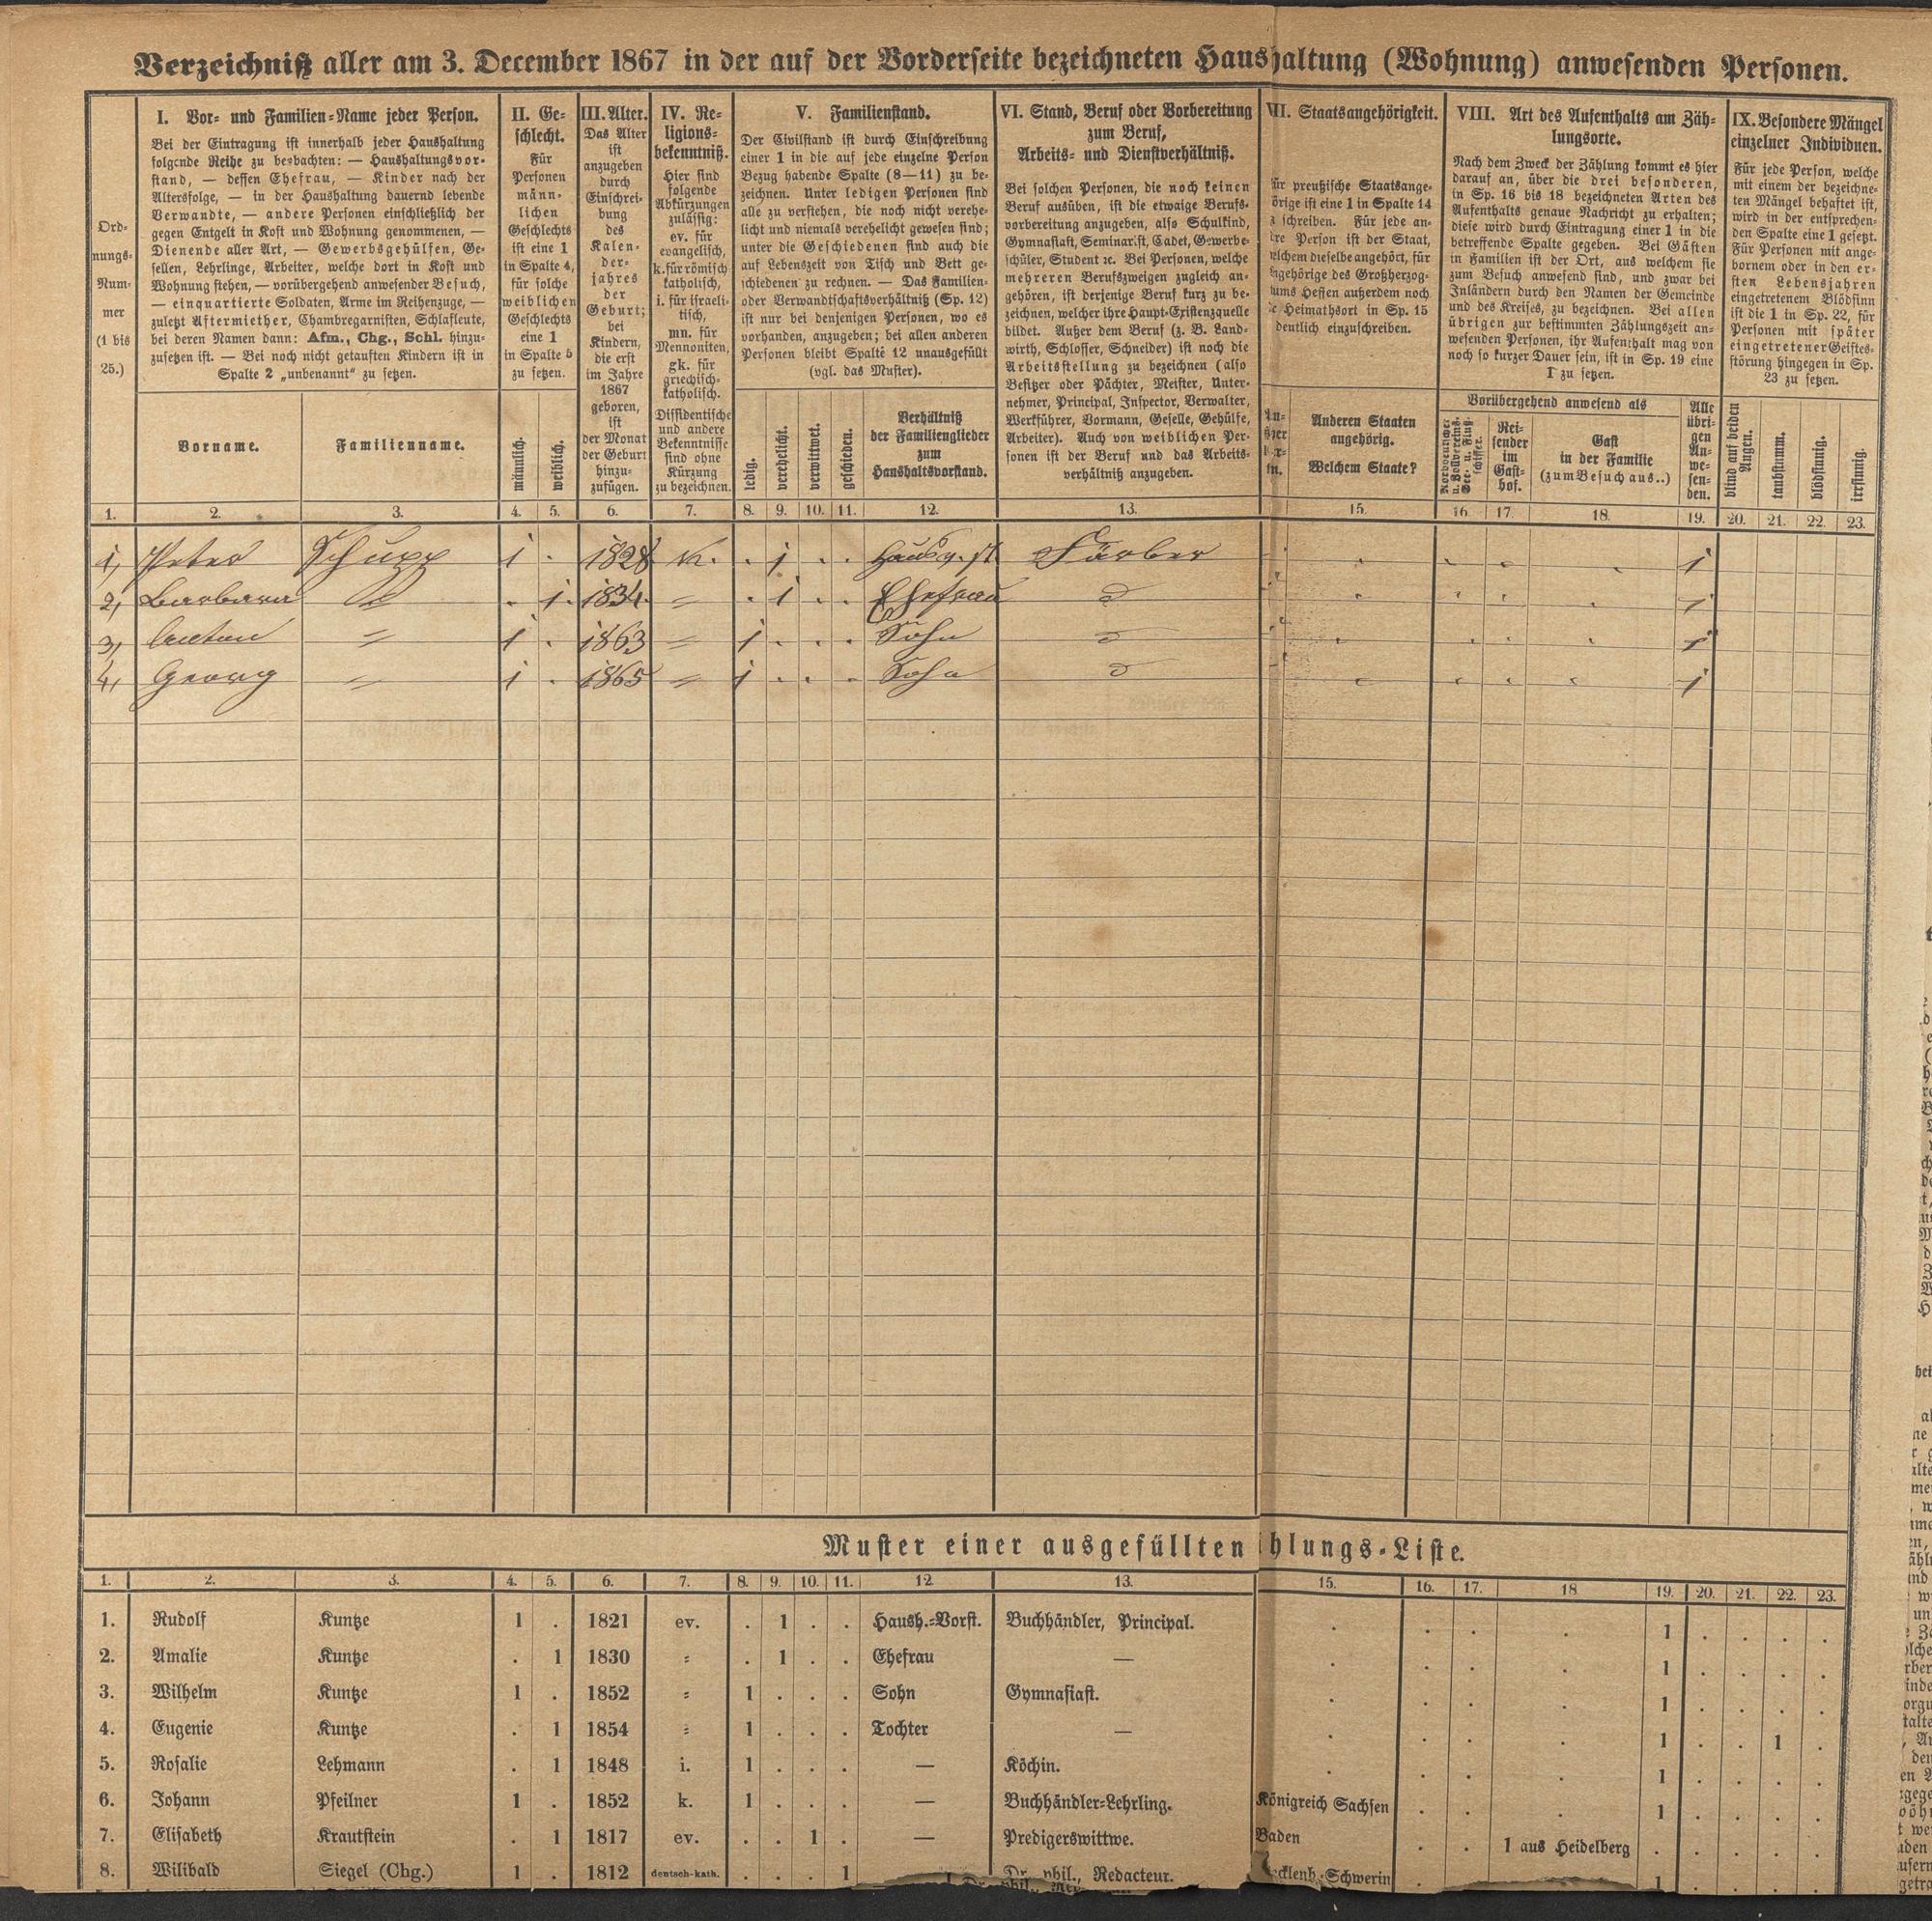 Verzeichniß aller am 3. December 1867 in der auf der Vorderseite bezeichneten Haushaltung (Wohnung) anwesenden Personen.
Ord-
nungs-
Num-
mer
(1 bis
25.)
I. Vor- und Familien-Name jeder Person.
Bei der Eintragung ist innerhalb jeder Haushaltung
folgende Reihe zu beobachten: — Haushaltungsvor-
stand, — dessen Ehefrau, — Kinder nach der
Altersfolge, — in der Haushaltung dauernd lebende
Verwandte, — andere Personen einschließlich der
gegen Entgelt in Kost und Wohnung genommenen, —
Dienende aller Art, — Gewerbsgehülfen, Ge-
sellen, Lehrlinge, Arbeiter, welche dort in Kost und
Wohnung stehen, — vorübergehend anwesender Besuch,
— einquartierte Soldaten, Arme im Reihenzuge, —
zuletzt Aftermiether, Chambregarnisten, Schlafleute,
bei deren Namen dann: Afm., Chg., Schl. hinzu-
zusetzen ist. — Bei noch nicht getauften Kindern ist in
Spalte 2 „unbenannt“ zu setzen.
Vorname.
Familienname.
II. Ge-
schlecht.
Für
Personen
männ-
lichen
Geschlechts
ist eine 1
in Spalte 4,
für solche
weiblichen
Geschlechts
eine 1
in Spalte 5
zu setzen.
männlich.
weiblich.
III. Alter.
Das Alter
ist
anzugeben
durch
Einschrei-
bung
des
Kalen-
der-
jahres
der
Geburt;
bei
Kindern,
die erst
im Jahre
1867
geboren,
ist
der Monat
der Geburt
hinzu-
zufügen.
IV. Re-
ligions-
bekenntniß.
Hier sind
folgende
Abkürzungen
zulässig:
ev. für
evangelisch,
k. für römisch
katholisch,
i. für israeli-
tisch,
mn. für
Mennoniten,
gk. für
griechisch-
katholisch.
Dissidentische
und andere
Bekenntnisse
sind ohne
Kürzung
zu bezeichnen.
V. Familienstand.
Der Civilstand ist durch Einschreibung
einer 1 in die auf jede einzelne Person
Bezug habende Spalte (8—11) zu be-
zeichnen. Unter ledigen Personen sind
alle zu verstehen, die noch nicht verehe-
licht und niemals verehelicht gewesen sind;
unter die Geschiedenen sind auch die
auf Lebenszeit von Tisch und Bett ge-
schiedenen zu rechnen. — Das Familien-
oder Verwandtschaftsverhältniß (Sp. 12)
ist nur bei denjenigen Personen, wo es
vorhanden, anzugeben; bei allen anderen
Personen bleibt Spalte 12 unausgefüllt
(vgl. das Muster).
ledig.
verehelicht.
verwittwet.
geschieden.
Verhältniß
der Familienglieder
zum
Haushaltsvorstand.
VI. Stand, Beruf oder Vorbereitung
zum Beruf,
Arbeits- und Dienstverhältniß.
Bei solchen Personen, die noch keinen
Beruf ausüben, ist die etwaige Berufs-
vorbereitung anzugeben, also Schulkind,
Gymnasiast, Seminarist, Cadet, Gewerbe-
schüler, Student ꝛc. Bei Personen, welche
mehreren Berufszweigen zugleich an-
gehören, ist derjenige Beruf kurz zu be-
zeichnen, welcher ihre Haupt-Existenzquelle
bildet. Außer dem Beruf (z. B. Land-
wirth, Schlosser, Schneider) ist noch die
Arbeitsstellung zu bezeichnen (also
Besitzer oder Pächter, Meister, Unter-
nehmer, Principal, Inspector, Verwalter,
Werkführer, Vormann, Geselle, Gehülfe,
Arbeiter). Auch von weiblichen Per-
sonen ist der Beruf und das Arbeits-
verhältniß anzugeben.
VII. Staatsangehörigkeit.
für preußische Staatsange-
örige ist eine 1 in Spalte 14
schreiben. Für jede an-
Person ist der Staat,
elchem dieselbe angehört, für
ngehörige des Großherzog-
ums Hessen außerdem noch
Heimathsort in Sp. 15
deutlich einzuschreiben.
Anderen Staaten
angehörig.
Welchem Staate?
VIII. Art des Aufenthalts am Zäh-
lungsorte.
Nach dem Zweck der Zählung kommt es hier
darauf an, über die drei besonderen,
in Sp. 16 bis 18 bezeichneten Arten des
Aufenthalts genaue Nachricht zu erhalten;
diese wird durch Eintragung einer 1 in die
betreffende Spalte gegeben. Bei Gästen
in Familien ist der Ort, aus welchem sie
zum Besuch anwesend sind, und zwar bei
Inländern durch den Namen der Gemeinde
und des Kreises, zu bezeichnen. Bei allen
übrigen zur bestimmten Zählungszeit an-
wesenden Personen, ihr Aufenthalt mag von
noch so kurzer Dauer sein, ist in Sp. 19 eine
1 zu setzen.
Vorübergehend anwesend als
Norddeutscher
u. Zollvereins-
See- u. Fluß-
schiffer.
Rei-
sender
im
Gast-
hof.
Gast
in der Familie
(zum Besuch aus..)
Alle
übri-
gen
An-
we-
sen-
den.
IX. Besondere Mängel
einzelner Individuen.
Für jede Person, welche
mit einem der bezeichne-
ten Mängel behaftet ist,
wird in der entsprechen-
den Spalte eine 1 gesetzt.
Für Personen mit ange-
bornem oder in den er-
sten Lebensjahren
eingetretenem Blödsinn
ist die 1 in Sp. 22, für
Personen mit später
eingetretener Geistes-
störung hingegen in Sp.
23 zu setzen.
blind auf beiden
Augen.
taubstumm.
blödsinnig.
irrsinnig.
1. 2. 3. 4. 5. 6. 7. 8. 9. 10. 11. 12. 13. 15. 16. 17. 18. 19. 20. 21. 22. 23.
1, Peter Schupp 1 . 1828 k. . 1 . . Hausv.st. Färber 1
2, Barbara = . 1. 1834. = . 1 . . Ehefrau 1
3, Anton = 1 . 1863 = 1 . . . Sohn 1
4, Georg = 1 . 1865 = 1 . . . Sohn 1
Muster einer ausgefüllten hlungs-Liste.
1. 2. 3. 4. 5. 6. 7. 8. 9. 10. 11. 12 13. 15. 16. 17. 18 19. 20. 21. 22. 23.
1. Rudolf Kuntze 1 . 1821 ev. . 1 . . Haush.-Vorst. Buchhändler, Principal. . . . . 1 . . . .
2. Amalie Kuntze . 1 1830 = . 1 . . Ehefrau — . . . . 1 . . . .
3. Wilhelm Kuntze 1 . 1852 = 1 . . . Sohn Gymnasiast. . . . . 1 . . . .
4. Eugenie Kuntze . 1 1854 = 1 . . . Tochter — . . . . 1 . . 1 .
5. Rosalie Lehmann . 1 1848 i. 1 . . . — Köchin. . . . . 1 . . . .
6. Johann Pfeilner 1 . 1852 k. 1 . . . — Buchhändler-Lehrling. Königreich Sachsen . . . 1 . . . .
7. Elisabeth Krautstein . 1 1817 ev. . . 1 . — Predigerswittwe. Baden . . 1 aus Heidelberg . . . . .
8. Wilibald Siegel (Chg.) 1 . 1812 deutsch-kath. . . . 1 Dr. phil., Redacteur. cklenb.-Schwerin . 1 . . . .